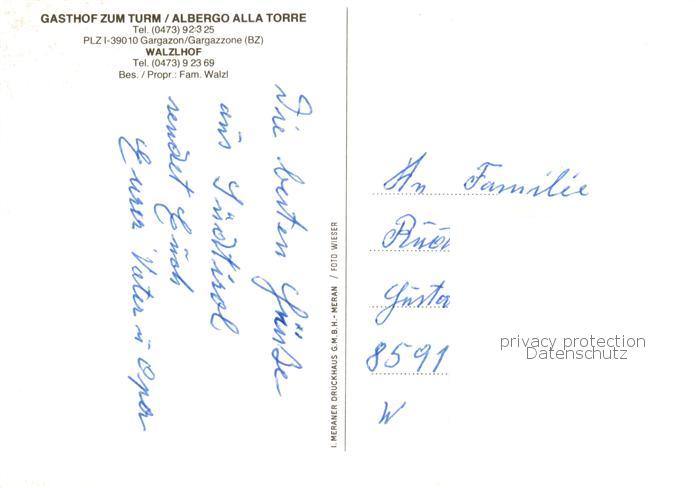 GASTHOF ZUM TURM / ALBERGO ALLA TORRE
Tel. (0473) 92325
PLZ I-39010 Gargazon/Gargazzone (BZ)
WALZLHOF
Tel. (0473) 9 23 69
Bes. / Propr.: Fam. Walzl
Die besten Grüße
aus Südtirol
sendet Euch
Eurer Vater u Opa
I. MERANER DRUCKHAUS G.M.B.H. - MERAN / FOTO WIESER
An Familie
8591
W
privacy protection
Datenschutz